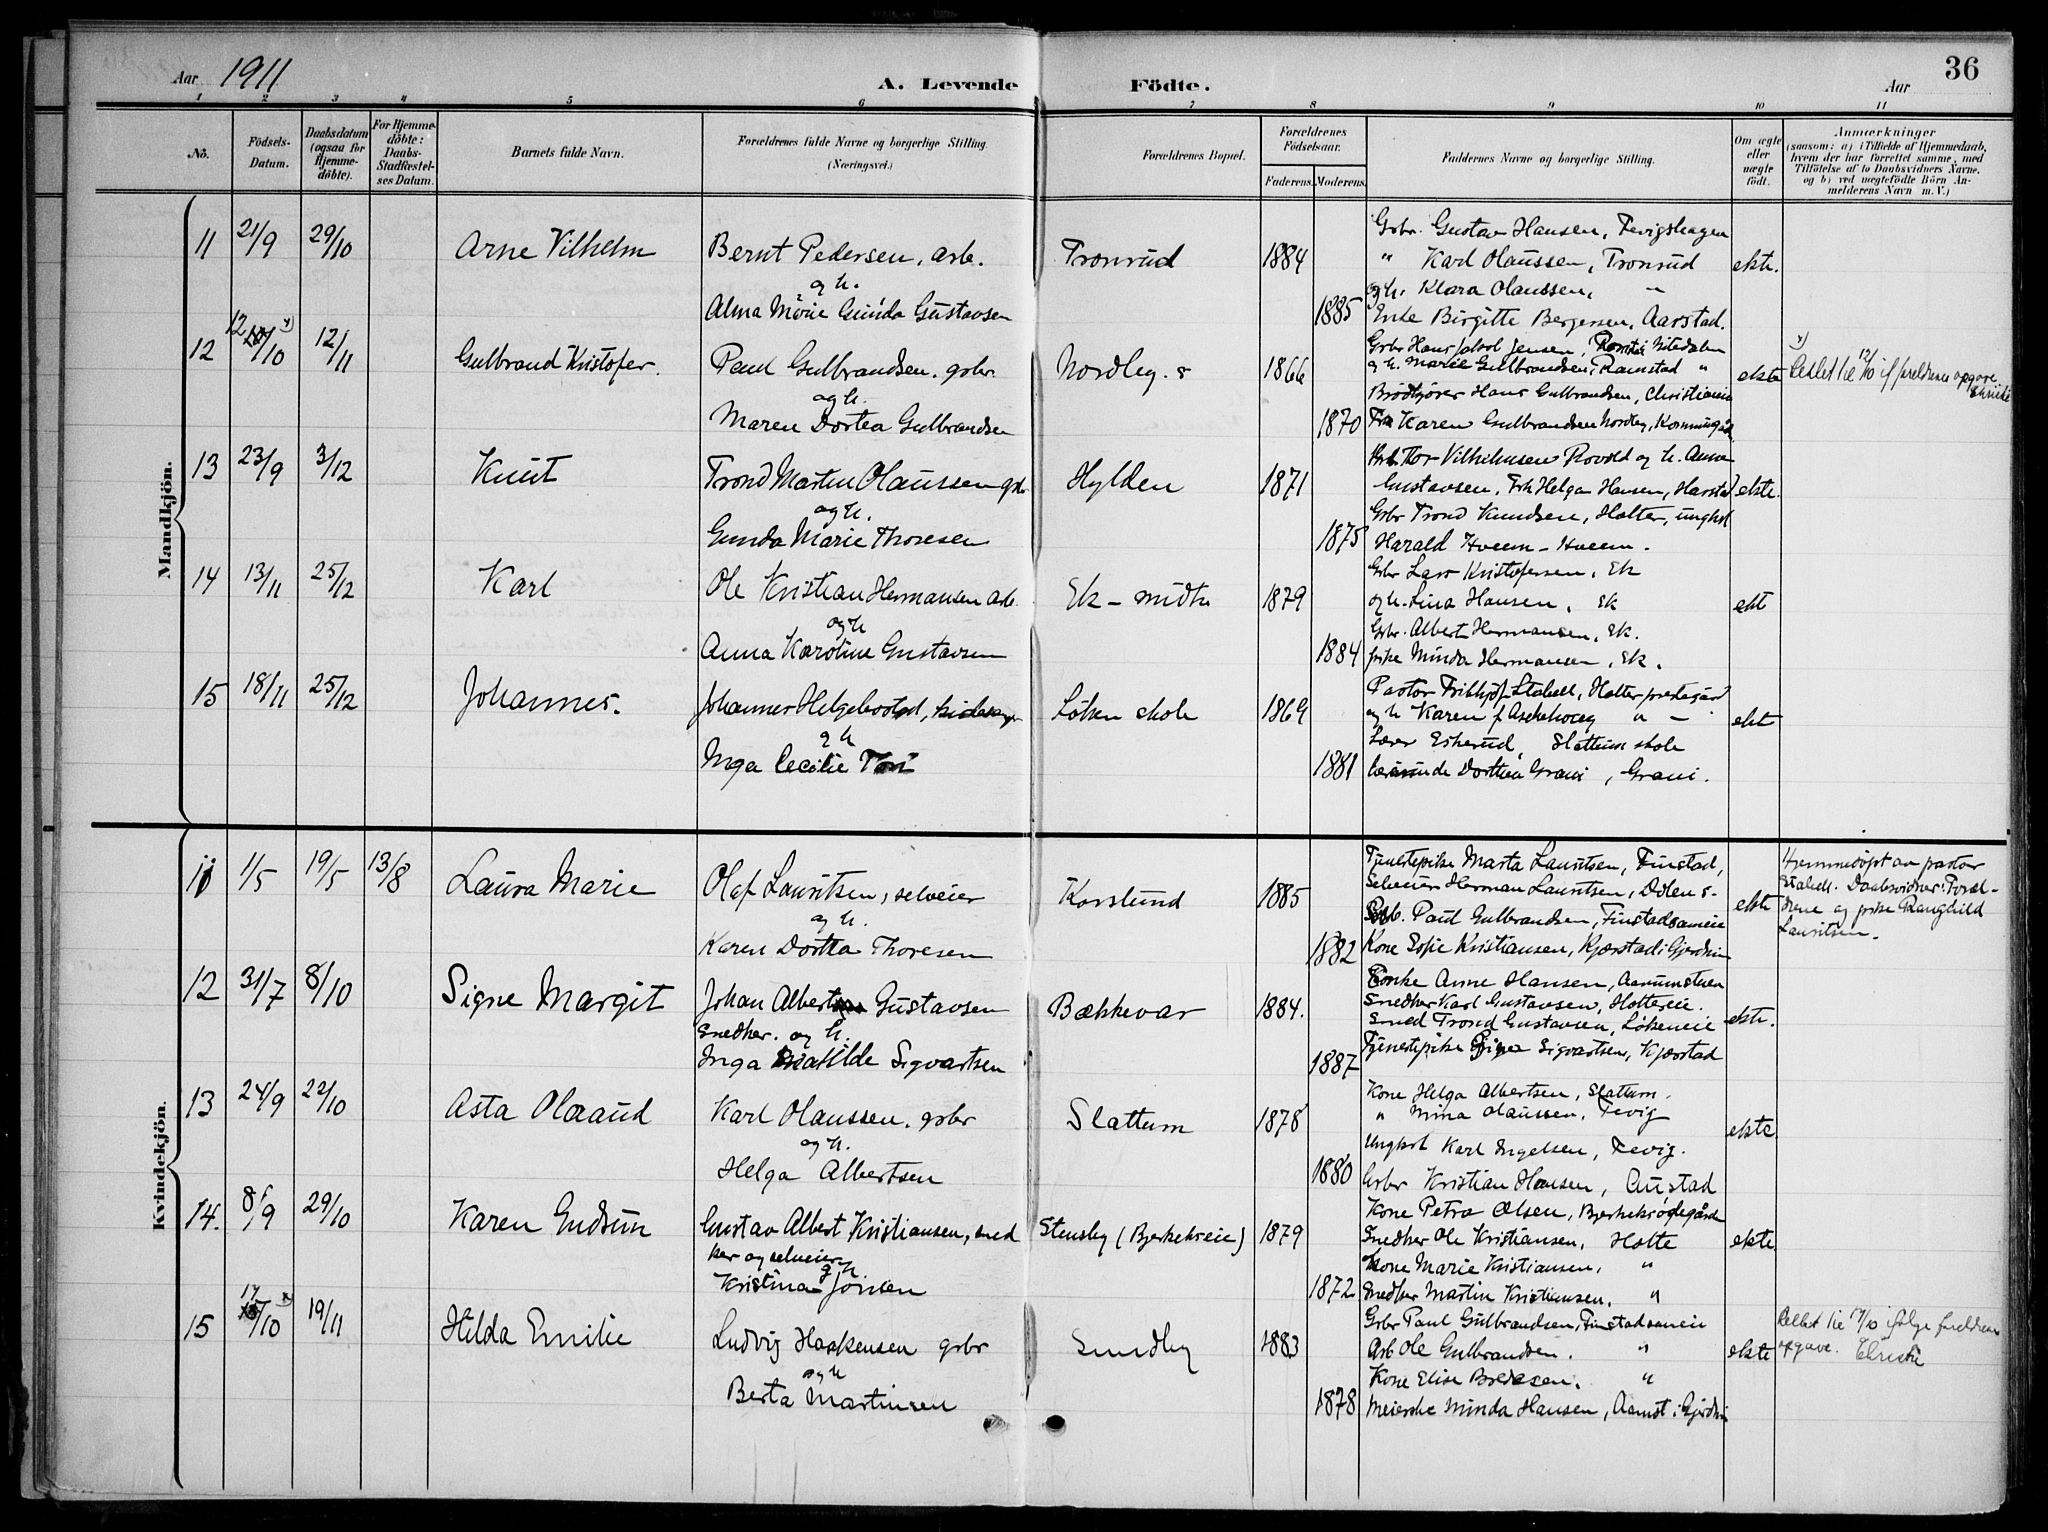 Aar 1911
A. Levende Födte.
Aar
36
1 2 3 4 5 6 7 8 9 10 11
Nö.
Födsels-Datum.
Daabsdatum (ogsaa for Hjemmedöbte).
For Hjemmedöbte: Daabs-Stadfæstelses Datum.
Barnets fulde Navn.
Forældrenes fulde Navne og borgerlige Stilling. (Næringsvei.)
Forældrenes Bopæl.
Forældrenes Födselsaar.
Faderens. Moderens.
Faddernes Navne og borgerlige Stilling.
Om ægte eller uægte födt.
Anmærkninger
(saasom: a) i Tilfælde af Hjemmedaab, hvem der har forrettet samme, med Tilföielse af to Daabsvidners Navne. og b) ved uægtefödte Börn Anmelderens Navn m. V.)
Mandkjön.
11 21/9 29/10 Arne Vilhelm Bernt Pedersen, arb. Tronrud 1884 ekte.
og h.
Alma Marie Gunda Gustavsen 1885
Gbr. Gustav Hansen, Tevigshagen
" Karl Olaussen, Tronrud
og h. Klara Olaussen, "
Enke Birgitte Bergersen, Aarstad.
12 12/10 x) 12/11 Gulbrand Kristofer. Paul Gulbrandsen. gbr. Nordby. s 1866 ekte
og h.
Maren Dortea Gulbrandsen 1870
Gbr Hans Jakob Jensen, Nitedalen
og h. Marie Gulbrandsen, Ramstad "
Hans Gulbrandsen, Christiania
Karen Gulbrandsen Nordby,
x) Rettet til 12/10 if forældrenes opgave.
13 23/9 3/12 Knut Trond Martin Olaussen gbr Hylden 1871 ekte.
og h.
Gunda Marie Thoresen 1875
Thor Vilhelmsen Rovold og h. Anna
Gustavsen. Frk Helga Hansen, Harstad
Gbr Trond Knudsen, Holter, ungkrl
Harald Hveem - Hveem.
14 13/11 25/12 Karl Ole Kristian Hermansen arb. Ek - midtre 1879 ekt
og h
Anna Karoline Gustavsen 1884
Gbr Lars Kristofersen, Ek
og h. Lina Hansen, Ek
Gbr. Albert Hermansen, Ek.
pike Minda Hermansen, Ek.
15 18/11 25/12 Johannes. Johannes Helgebostad, Løken skole 1869 ekt
og h
Inga Cecilie 1881
Pastor Fridtjof Stabell, Holter prestegård
og h Karen f. Aschehoug " -
Lærer Eskerud, Slattum skole
Dorthea Grani, Grani.
Kvindekjön.
11 1/5 19/5 13/8 Laura Marie Olaf Lauritsen, selveier Korslund 1885 ekte
og h.
Karen Dortea Thoresen 1882
Tjenestepike Marta Lauritsen, Finstad,
Selveier Herman Lauritsen, Dølen s.
Paul Gulbrandsen, Finstadsameie
Kone Sofie Kristiansen, Kjærstad i Gjerdrum
Hjemmedøpt av pastor
Stabell. Daabsvidner: Foræl-
drene og pike Ranghild
Lauritsen.
12 31/7 8/10 Signe Margit Johan Albert Gustavsen Bækkevar 1884. ekte.
Snedker. og h.
Inga Matilde Sigvartsen 1887
Enke Anne Hansen, Aamumstuen
Snedker Karl Gustavsen, Holtereie.
Smed Trond Gustavsen, Løkeneie
Tjenestepike Signe Sigvartsen, Kjærstad
13 24/9 22/10 Asta Olaaud Karl Olaussen. gbr Slattum 1878 ekte
og h.
Helga Albertsen 1880
Kone Helga Albertsen, Slattum.
" Mina Olaussen, Tevig
Ungkrl Karl Ingelsen, Tevig.
Gbr Kristian Hansen, Austad
14. 8/9 29/10 Karen Gudrun Gustav Albert Kristiansen, sned Stensby (Bjerkekreie) 1879 ekte
ker og selveier
og h
Kristina Jonsen 1872
Kone Petra Olsen,
Snedker Ole Kristiansen, Holte
Kone Marie Kristiansen. "
Snedker Martin Kristiansen. "
15 17/10 x) 19/11 Hilda Emilie Ludvig Haakensen gbr Sundby 1883 ekte
og h
Berta Martinsen 1878
Gbr Paul Gulbrandsen, Finstadsameie
Arb Ole Gulbrandsen. "
Kone Elise "
Meierske Minda Hansen, Aamot i Gjerdrum
Rettet til 17/10 ifølge forældrenes
opgave.